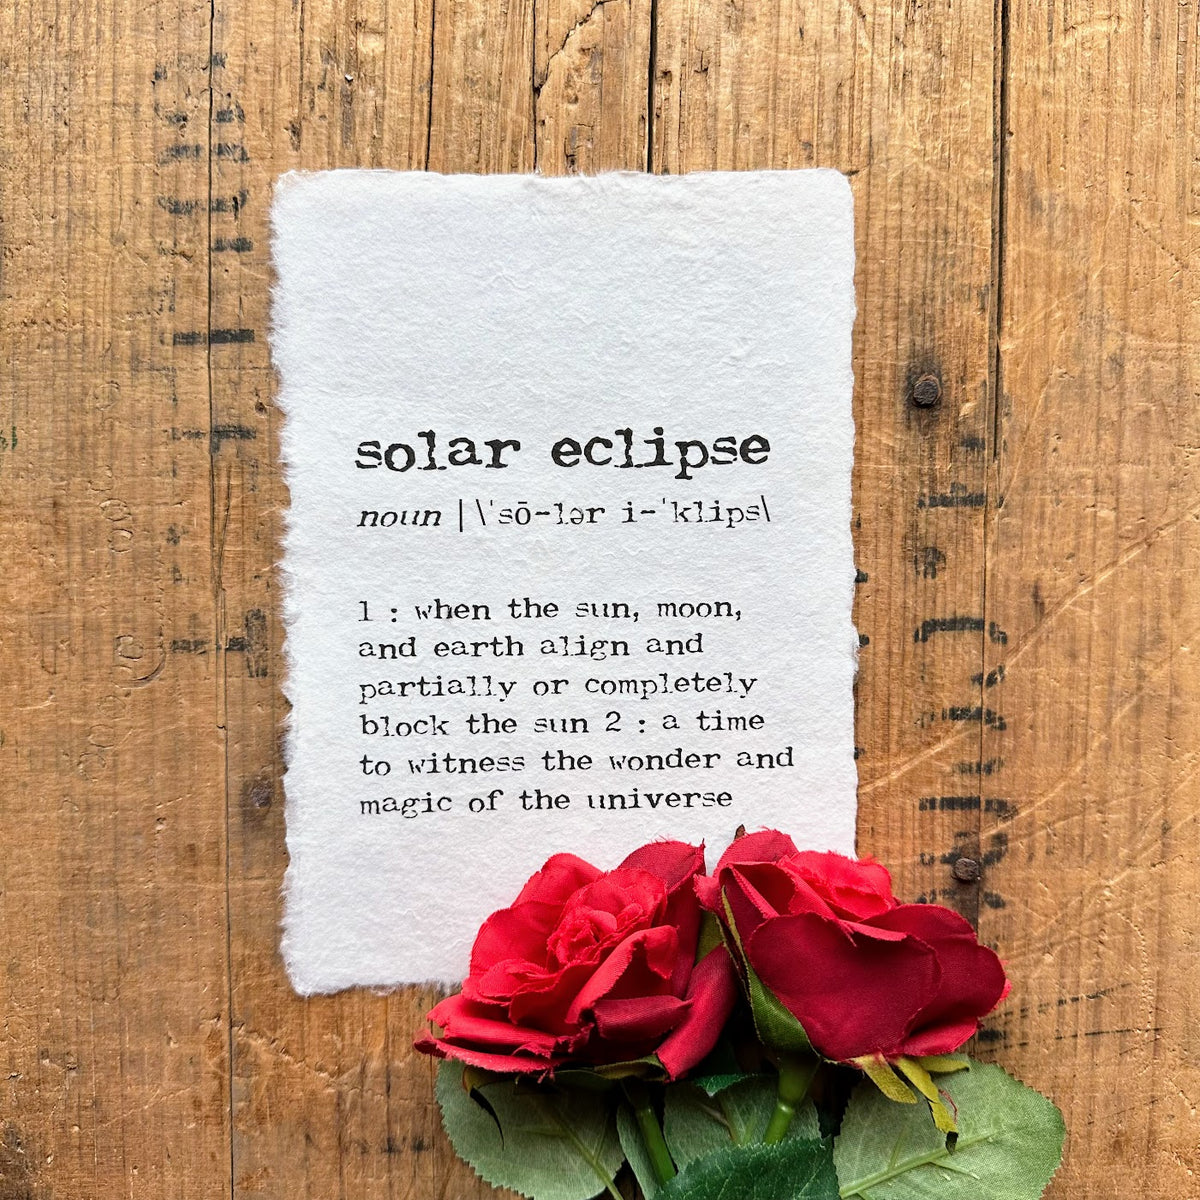 solar eclipse
noun | \ˈsō-lər i-ˈklips\
1 : when the sun, moon,
and earth align and
partially or completely
block the sun 2 : a time
to witness the wonder and
magic of the universe